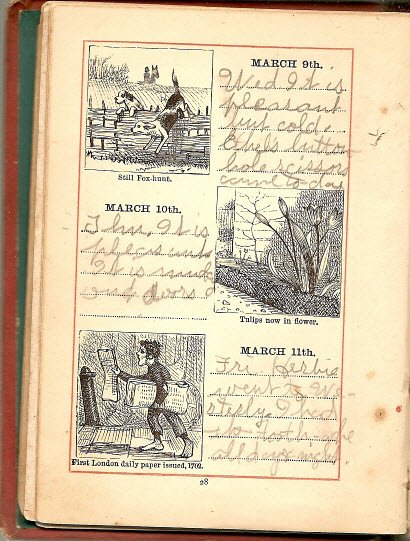 MARCH 9th.
Wed It is
pleasant
but cold.
Ethels button
hole scissors
came to day
Still Fox-hunt.
MARCH 10th.
Thu. It is
pleasant
It is mud
out doors
Tulips now in flower.
MARCH 11th.
Fri
went to We-
sterly I had
tooth ache
all day & night
First London daily paper issued, 1702.
28